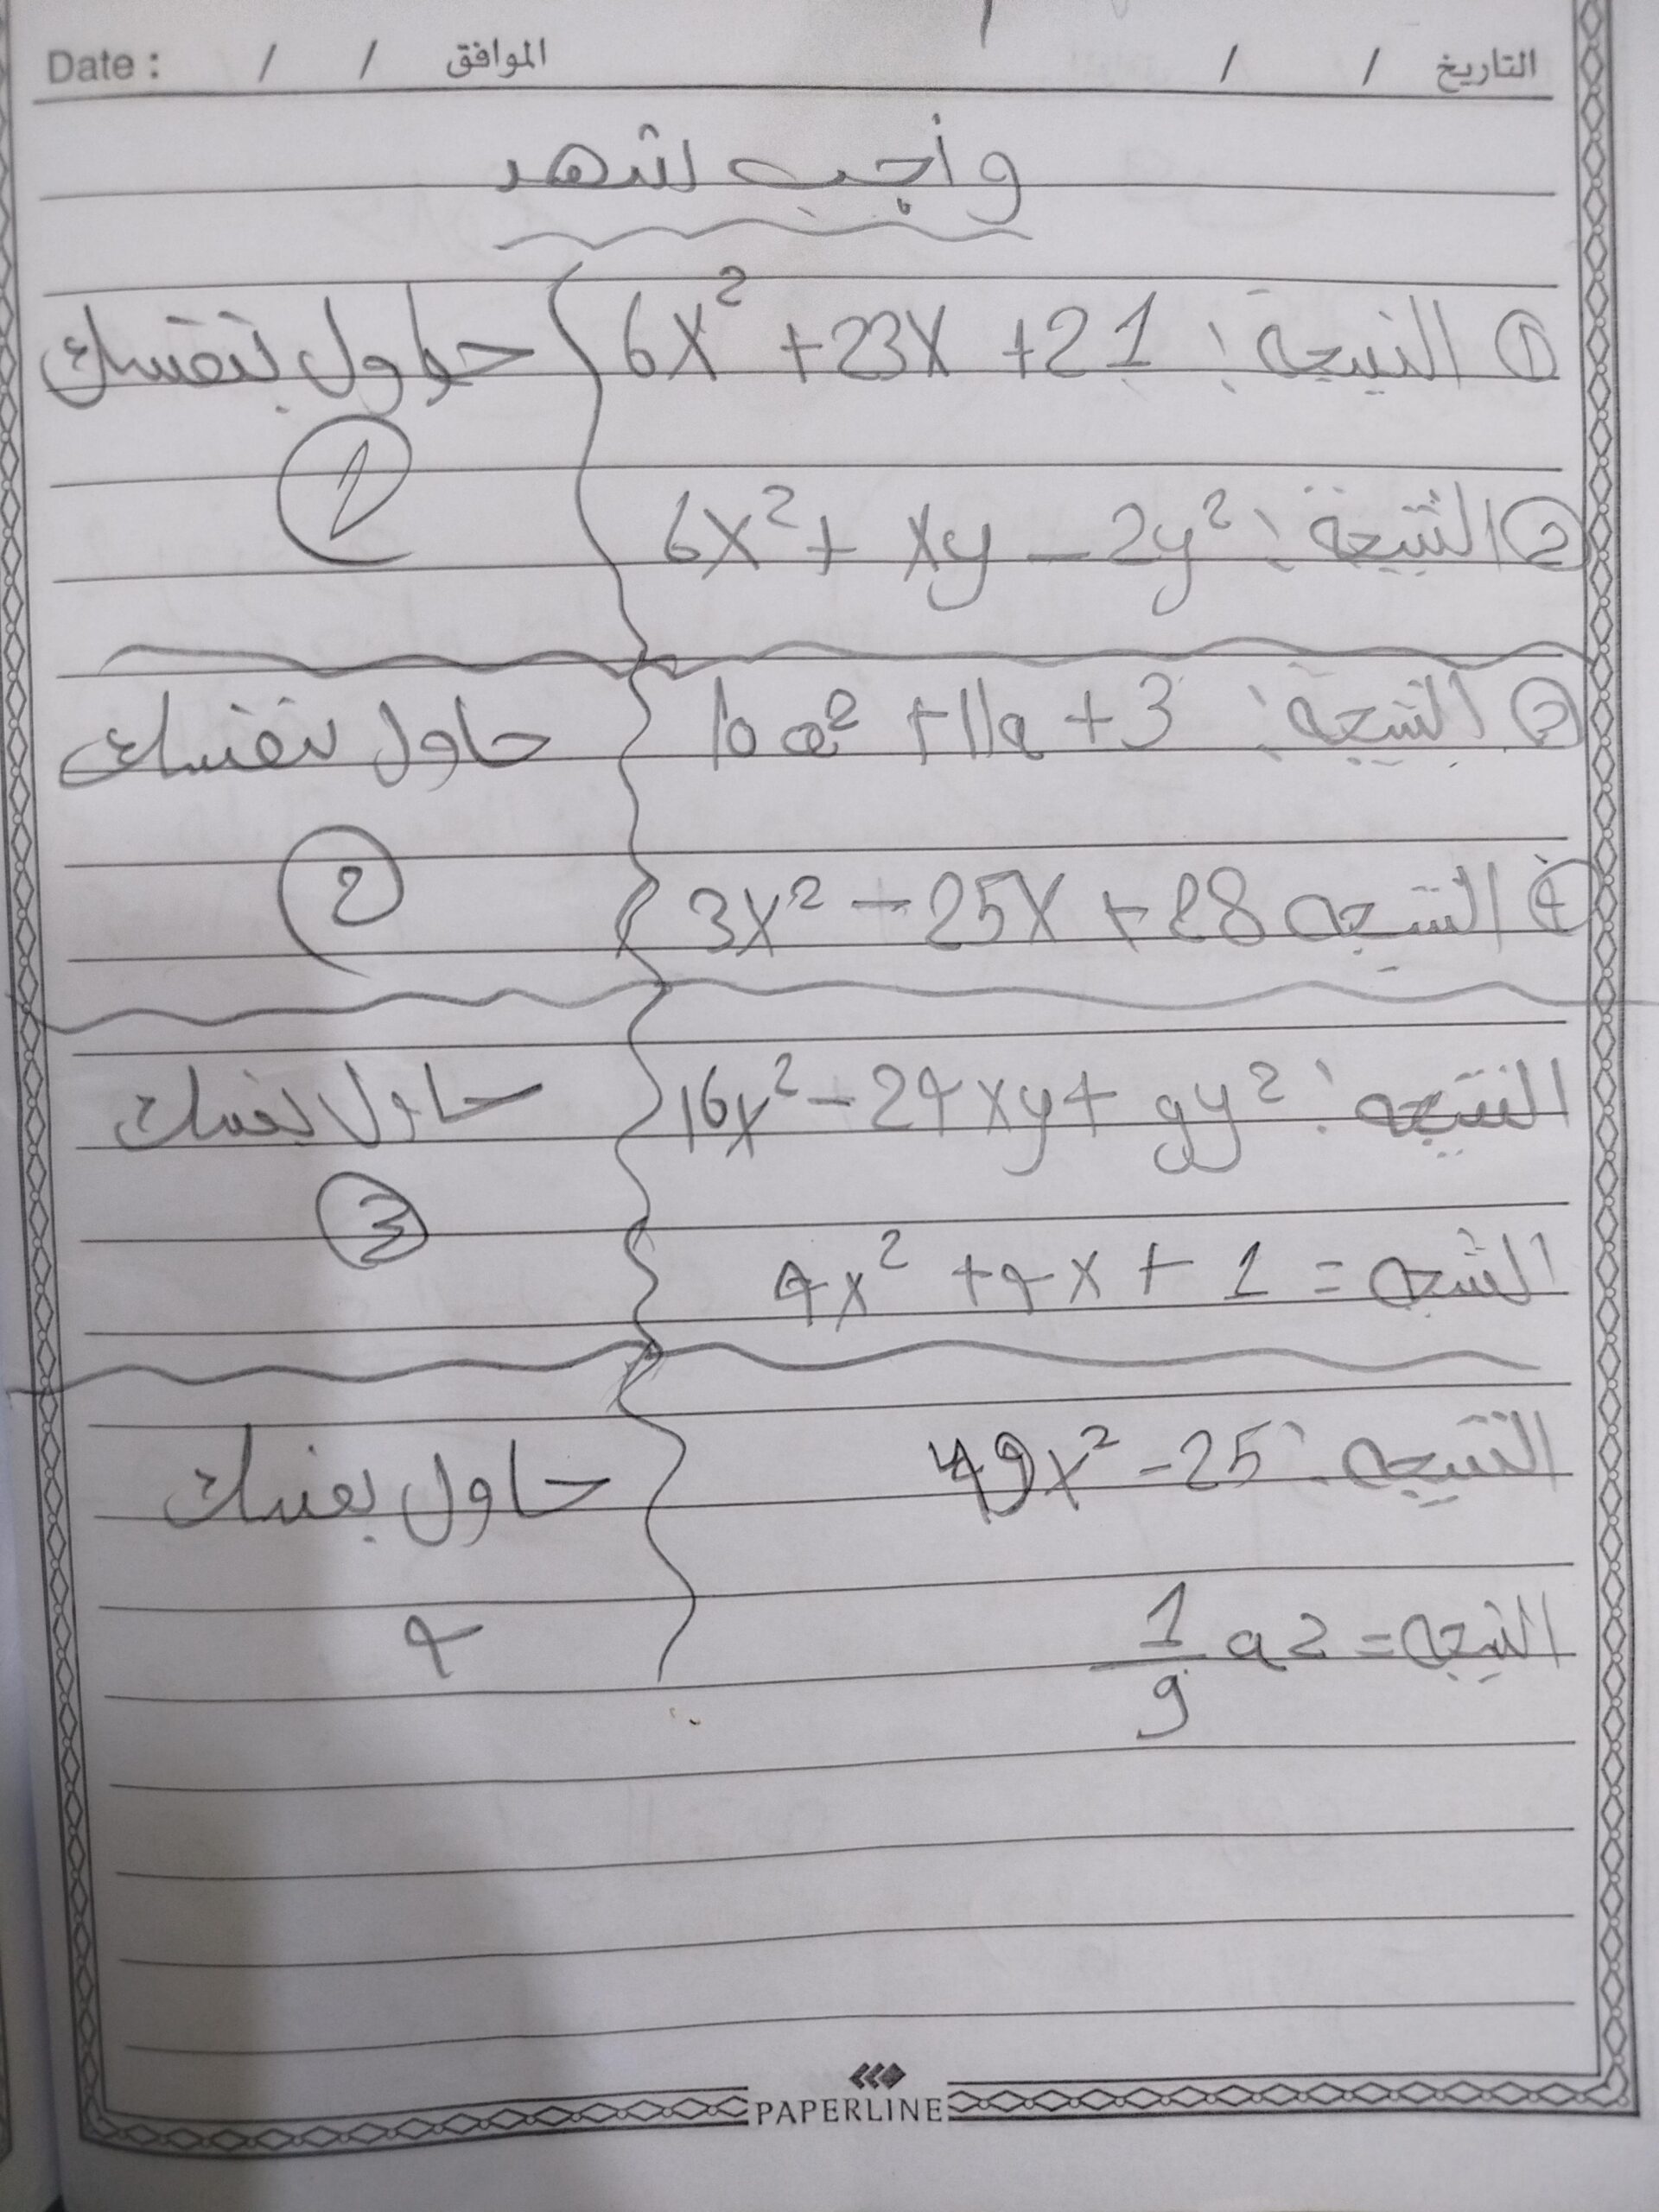 التاريخ / / الموافق / / Date :
واجب لشهد
① النتيجة: 6x² + 23x + 21
حاول بنفسك
①
② النتيجة: 6x² + xy - 2y²
③ النتيجة: 10a² + 11a + 3
حاول بنفسك
②
④ النتيجه 3x² - 25x + 28
النتيجه: 16x² - 24xy + 9y²
حاول بنفسك
③
النتيجه = 4x² + 4x + 1
النتيجه: 49x² - 25
حاول بنفسك
4
النتيجه = 1/9 a2
PAPERLINE